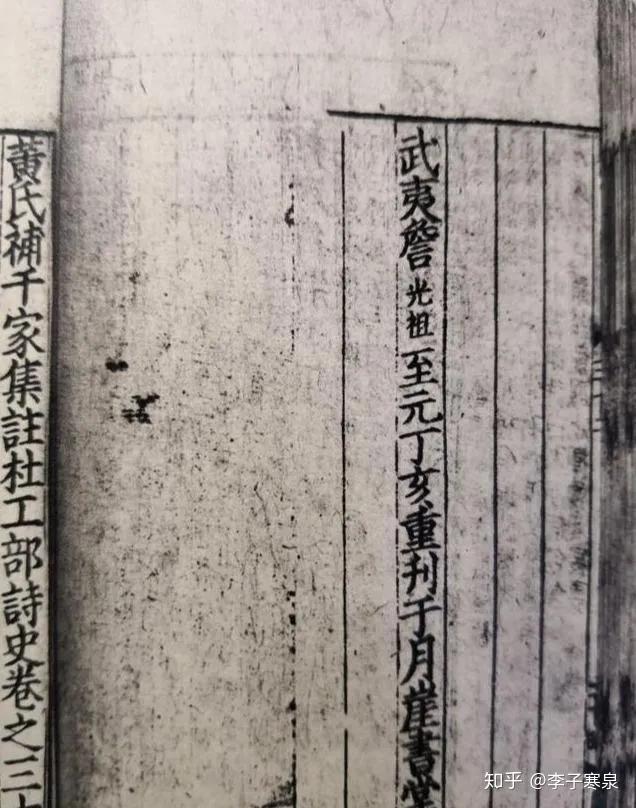 武夷詹光祖至元丁亥重刊于月崖書堂
黄氏補千家集註杜工部詩史卷之三十
知乎 @李子寒泉